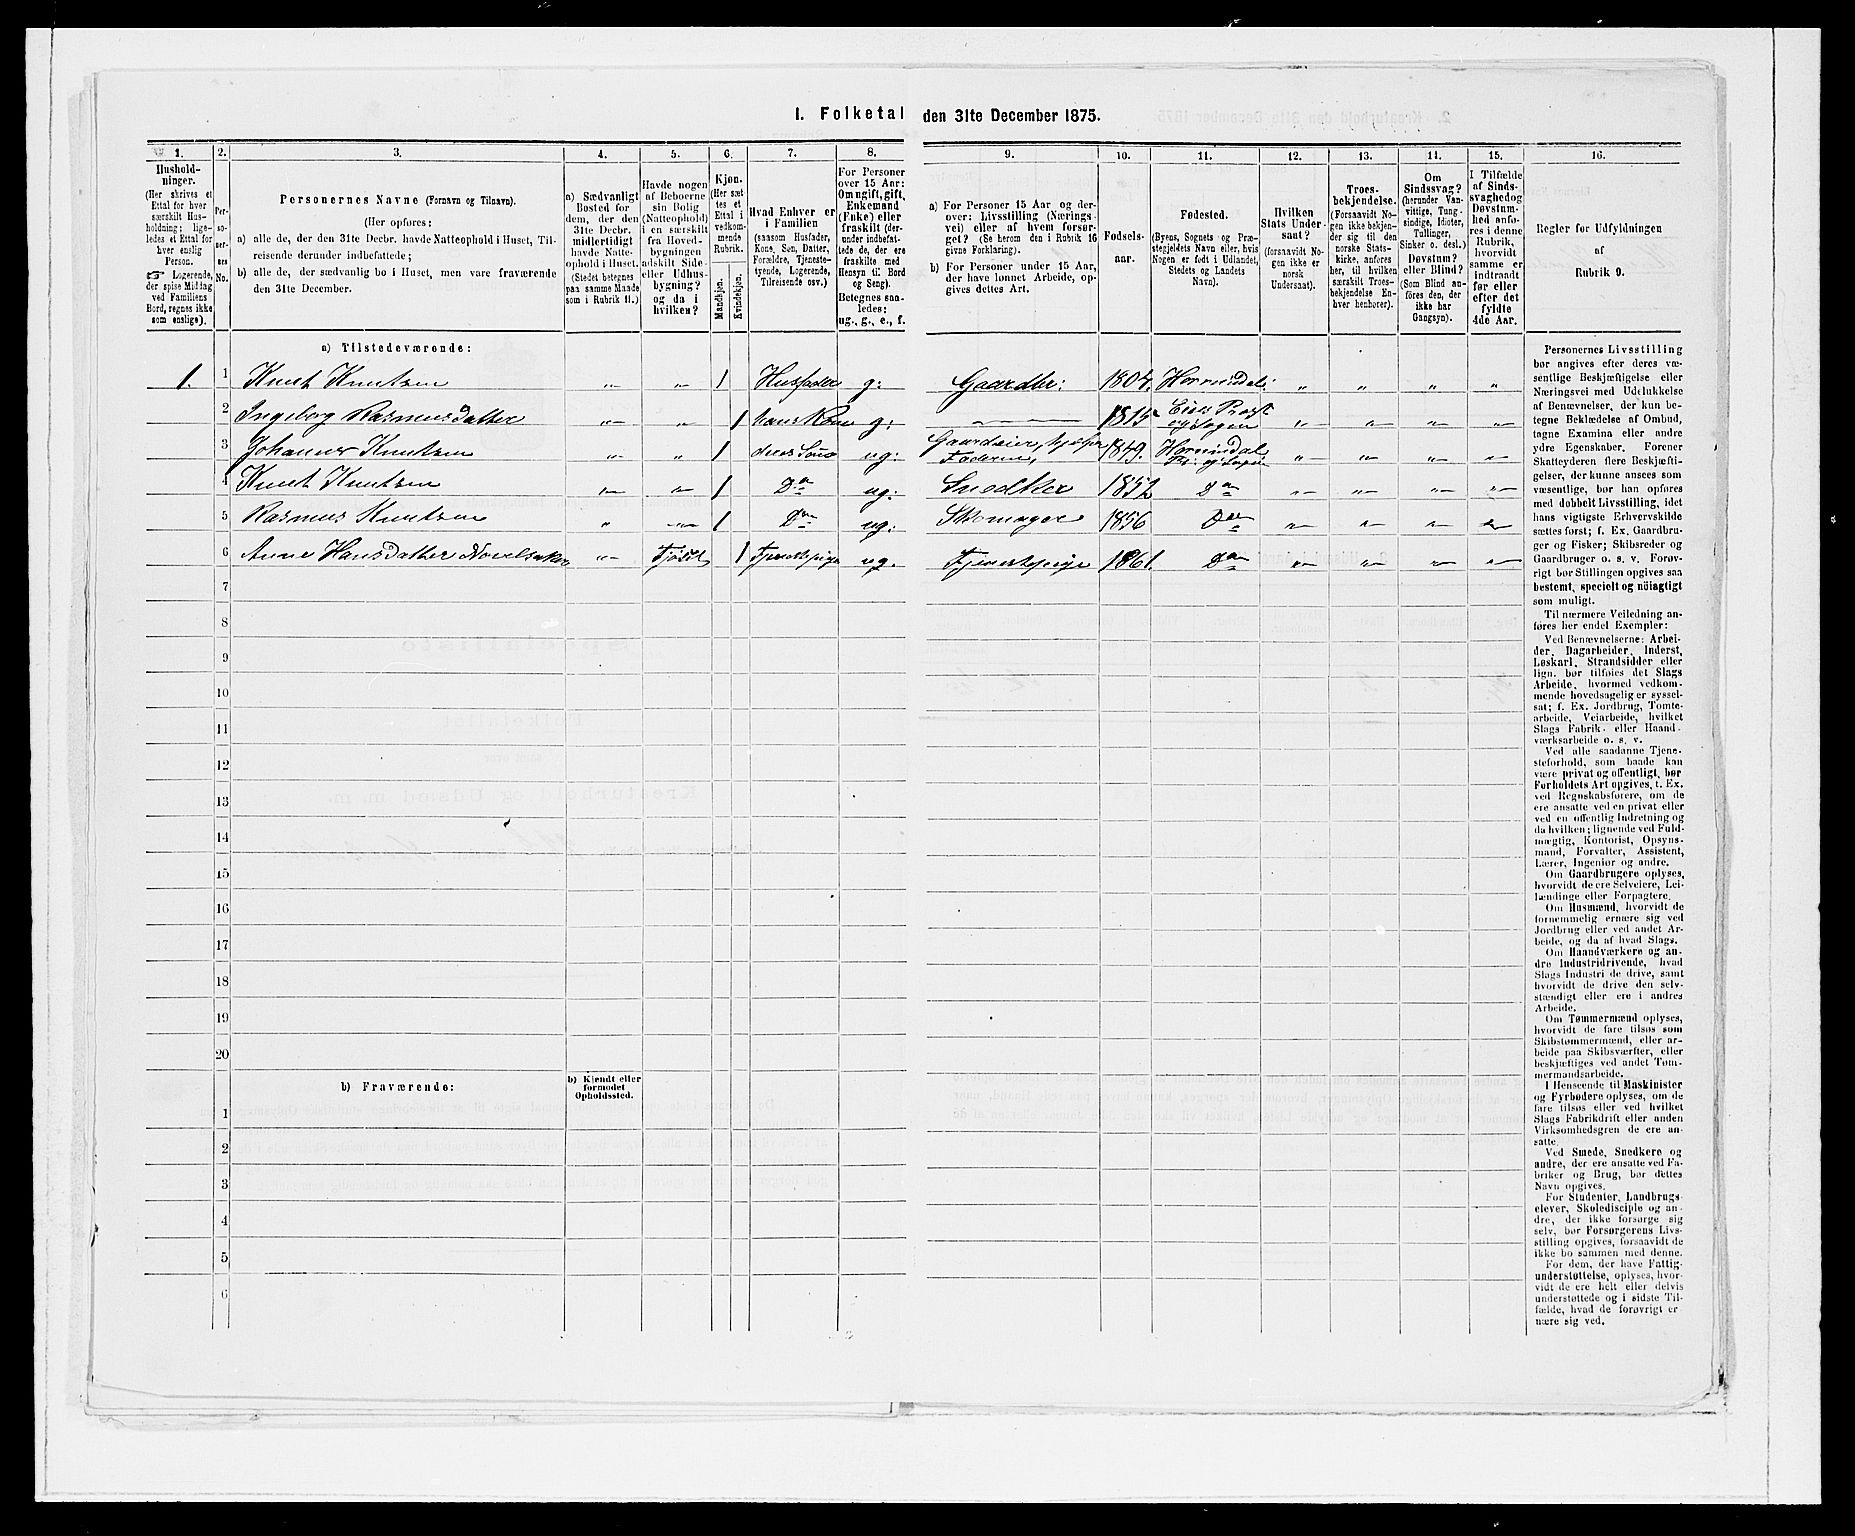 I. Folketal den 31te December 1875.
1. 2. 3. 4. 5. 6. 7. 8. 9. 10. 11. 12. 13. 14. 15. 16.
Hushold-
ninger.
(Her skrives et
Ettal for hver
særskilt Hus-
holdning; lige-
ledes et Ettal for
hver enslig
Person.
☞ Logerende,
der spise Middag
ved Familiens
Bord, regnes ikke
som enslige).
Per-
so-
ner-
nes
No.
Personernes Navne (Fornavn og Tilnavn).
(Her opføres:
a) alle de, der den 31te Decbr. havde Natteophold i Huset, Til-
reisende derunder indbefattede;
b) alle de, der sædvanlig bo i Huset, men vare fraværende
den 31te December.
a) Sædvanligt
Bosted for
dem, der den
31te Decbr.
midlertidigt
havde Natte-
ophold i Huset.
(Stedet betegnes
paa samme Maade
som i Rubrik 11.)
Havde nogen
af Beboerne
sin Bolig
(Natteophold)
i en særskilt
fra Hoved-
bygningen
adskilt Side-
eller Udhus-
bygning?
og da i
hvilken?
Kjøn.
(Her sæt-
tes et
Ettal i
vedkom-
mende
Rubrik.
Mandkjøn.
Kvindekjøn.
Hvad Enhver er
i Familien
(saasom Husfader,
Kone, Søn, Datter,
Forældre, Tjeneste-
tyende, Logerende,
Tilreisende osv.)
For Personer
over 15 Aar:
Om ugift, gift,
Enkemand
(Enke) eller
fraskilt (der-
under indbefat-
tede de, der ere
fraskilte med
Hensyn til Bord
og Seng).
Betegnes saa-
ledes:
ug., g., e., f.
a) For Personer 15 Aar og der-
over: Livsstilling (Nærings-
vei) eller af hvem forsør-
get? (Se herom den i Rubrik 16
givne Forklaring).
b) For Personer under 15 Aar,
der have lønnet Arbeide, op-
gives dettes Art.
Fødsels-
aar.
Fødested.
(Byens, Sognets og Præ-
stegjeldets Navn eller, hvis
Nogen er født i Udlandet,
Stedets og Landets
Navn).
Hvilken
Stats Under-
saat?
(forsaavidt No-
gen ikke er
norsk
Undersaat).
Troes-
bekjendelse.
(Forsaavidt No-
gen ikke bekjen-
der sig til den
norske Stats-
kirke, anføres
her, til hvilken
særskilt Troes-
bekjendelse En-
hver henhører).
Om
Sindssvag?
(herunder Van-
vittige, Tung-
sindige, Idioter,
Tullinger,
Sinker o. desl.)
Døvstum?
eller Blind?
(Som Blind an-
føres den, der
ikke har
Gangsyn).
I Tilfælde
af Sinds-
svaghed og
Døvstum-
hed anfø-
res i denne
Rubrik,
hvorvidt
samme er
indtraadt
før eller
efter det
fyldte
4de Aar.
Regler for Udfyldningen
af
Rubrik 9.
a) Tilstedeværende:
1. 1 Knut Knutsen „ „ 1 Husfader g: Gaardbr: 1807. Hornindal: „ „ „ „
2 Ingeborg Rasmusdatter „ „ 1 hans Kone g: — 1815 Eids Præst og Sogn „ „ „ „
3 Johannes Knutsen „ „ 1 deres Søn ug: Gaardeier, hjelper Faderen, 1849. Hornindal „ „ „ „
4 Knut Knutsen „ „ 1 Do ug: Snedker 1852 Do „ „ „ „
5 Rasmus Knutsen „ „ 1 Do ug: Skomager 1856 Do „ „ „ „
6 Anne Hansdatter „ 1 Tjenestepige ug. Tjenestepige 1861. Do „ „ „ „
7
8
9
10
11
12
13
14
15
16
17
18
19
20
b) Fraværende:
b) Kjendt eller
formodet
Opholdssted.
1
2
3
4
5
6
Personernes Livsstilling
bør angives efter deres væ-
sentlige Beskjæftigelse eller
Næringsvei med Udelukkelse
af Benævnelser, der kun be-
tegne Beklædelse af Ombud,
tagne Examina eller andre
ydre Egenskaber. Forener
Skatteyderen flere Beskjæfti-
gelser, der kunne ansees som
væsentlige, bør han opføres
med dobbelt Livsstilling, idet
hans vigtigste Erhvervskilde
sættes først; f. Ex. Gaardbru-
ger og Fisker; Skibsreder og
Gaardbruger o. s. v. Forøv-
rigt bør Stillingen opgives saa
bestemt, specielt og nöiagtigt
som muligt.
Til nærmere Veiledning an-
føres her endel Exempler:
Ved Benævnelserne: Arbei-
der, Dagarbeider, Inderst,
Løskarl, Strandsidder eller
lign. bør tilføies det Slags
Arbeide, hvormed vedkom-
mende hovedsagelig er syssel-
sat; f. Ex. Jordbrug, Tomte-
arbeide, Veiarbeide, hvilket
Slags Fabrik- eller Haand-
værksarbeide o. s. v.
Ved alle saadanne Tjene-
steforhold, som baade kan
være privat og offentligt, bør
Forholdets Art opgives, t. Ex.
ved Regnskabsførere, om de
ere ansatte ved en privat eller
ved en offentlig Indretning og
da hvilken; lignende ved Fuld-
mægtig, Kontorist, Opsyns-
mand, Forvalter, Assistent,
Lærer, Ingeniør og andre.
Om Gaardbrugere oplyses,
hvorvidt de ere Selveiere, Lei-
lændinge eller Forpagtere.
Om Husmænd, hvorvidt de
fornemmelig ernære sig ved
Jordbrug eller ved andet Ar-
beide, og da af hvad Slags.
Om Haandværkere og an-
dre Industridrivende, hvad
Slags Industri de drive, samt
hvorvidt de drive den selv-
stændigt eller ere i andres
Arbeide.
Om Tømmermænd oplyses,
hvorvidt de fare tilsøs som
Skibstømmermænd, eller ar-
beide paa Skibsværfter, eller
beskjæftiges ved andet Tøm-
mermandsarbeide.
I Henseende til Maskinister
og Fyrbødere oplyses, om de
fare tilsøs eller ved hvilket
Slags Fabrikdrift eller anden
Virksomhedsgren de ere an-
satte.
Ved Smede, Snedkere og
andre, der ere ansatte ved Fa-
briker og Brug, bør dettes
Navn opgives.
For Studenter, Landbrugs-
elever, Skoledisciple og an-
dre, der ikke forsørge sig
selv, bør Forsørgerens Livs-
stilling opgives, forsaavidt de
ikke bo sammen med denne.
For dem, der have Fattig-
understøttelse, oplyses, hvor-
vidt de ere helt eller delvis
understøttede og i sidste Til-
fælde, hvad de forøvrigt er-
nære sig ved.